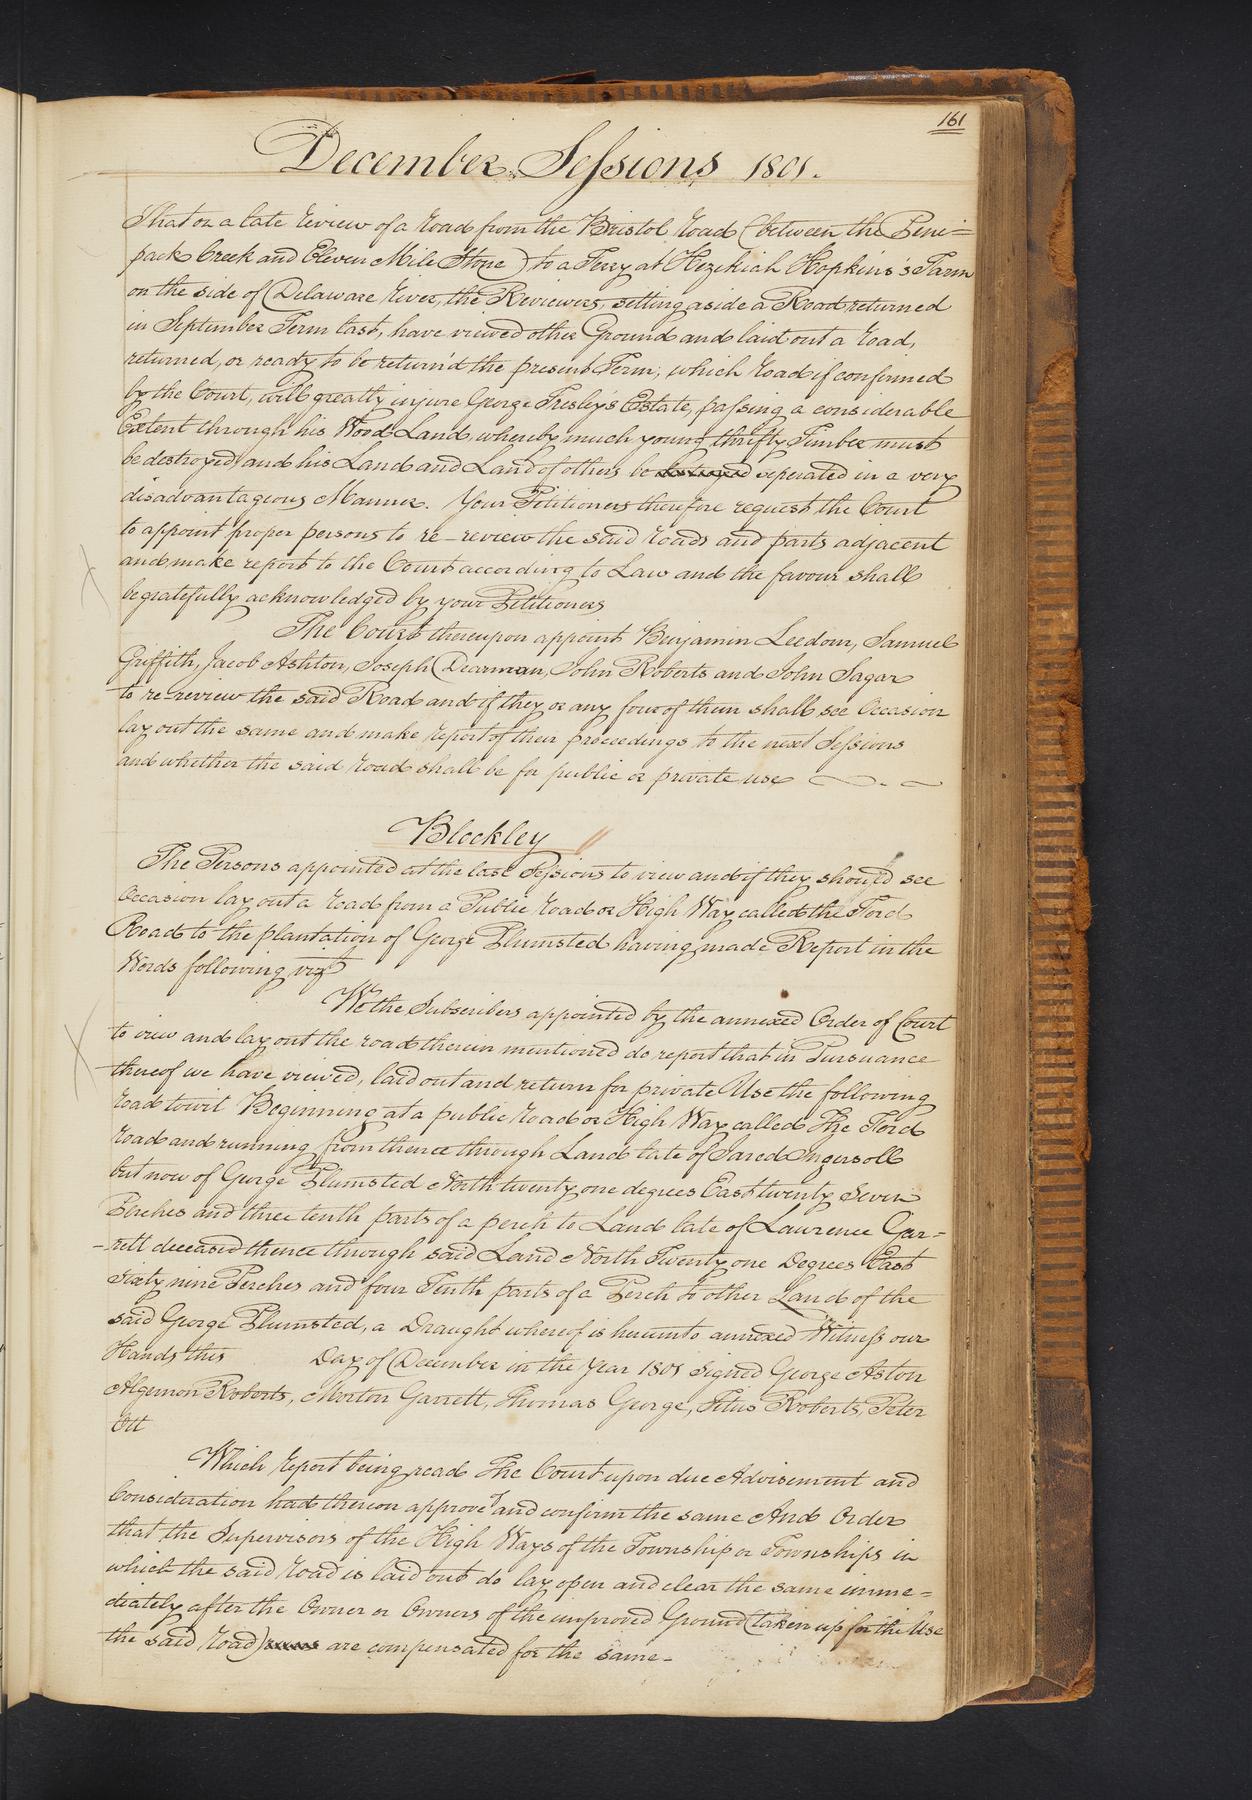 161
December Sessions 1801.
That on a late review of a road from the Bristol road (between the Peni=
pack Creek and Eleven Mile Stone) to a Ferry at Hezekiah Hopkins's Farm
on the side of Delaware River, the Reviewers, setting aside a Road returned
in September Term last, have viewed other Ground and laid out a road,
returned, or ready to be return'd the present Term, which road if confirmed
by the Court, will greatly injure George Fresley's Estate, passing a considerable
Extent through his Wood-Land whereby much young thrifty Timber must
be destroyed, and his Land and Land of others be seperated in a very
disadvantageous Manner. Your Petitioners therefore request the Court
to appoint proper persons to re-review the said roads and parts adjacent
and make report to the Court according to Law and the favour shall
be gratefully acknowledged by your Petitioners
The Court thereupon appoint Benjamin Leedom, Samuel
Griffith, Jacob Ashton, Joseph Dearman, John Roberts and John Sagar
to re-review the said Road and if they or any four of them shall see Occasion
lay out the same and make report of their proceedings to the next Sessions
and whether the said road shall be for public or private use
Blockley
The Persons appointed at the last Sessions to view and if they should see
Occasion lay out a road from a Public road or High Way called the Ford
Road to the plantation of George Plumsted having made Report in the
Words following vizt
We the Subscribers appointed by the annexed Order of Court
to view and lay out the road therein mentioned do report that in Pursuance
thereof we have viewed, laid out and return for private Use the following
road towit Beginning at a public road or High Way called The Ford
road and running from thence through Land late of Jared Ingersoll
but now of George Plumsted North twenty one degrees East twenty Seven
Perches and three tenth parts of a perch to Land late of Lawrence Gar=
-rett deceased thence through said Land North Twenty one Degrees East
Sixty nine Perches and four Tenth parts of a Perch to other Land of the
said George Plumsted, a Draught whereof is hereunto annexed Witness our
Hands this Day of December in the Year 1801 Signed George Aston
Algernon Roberts, Morton Garrett, Thomas George, Titus Roberts, Peter
Ott
Which report being read The Court upon due Advisement and
Consideration had thereon approve and confirm the same And Order
that the Supervisors of the High Ways of the Township or Townships in
which the said road is laid out do lay open and clear the same imme=
diately after the Owner or Owners of the improved Ground (taken up for the Use
the said road) are compensated for the same-